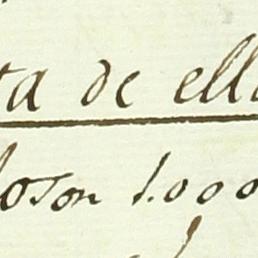 ta de ella
oson 1.000